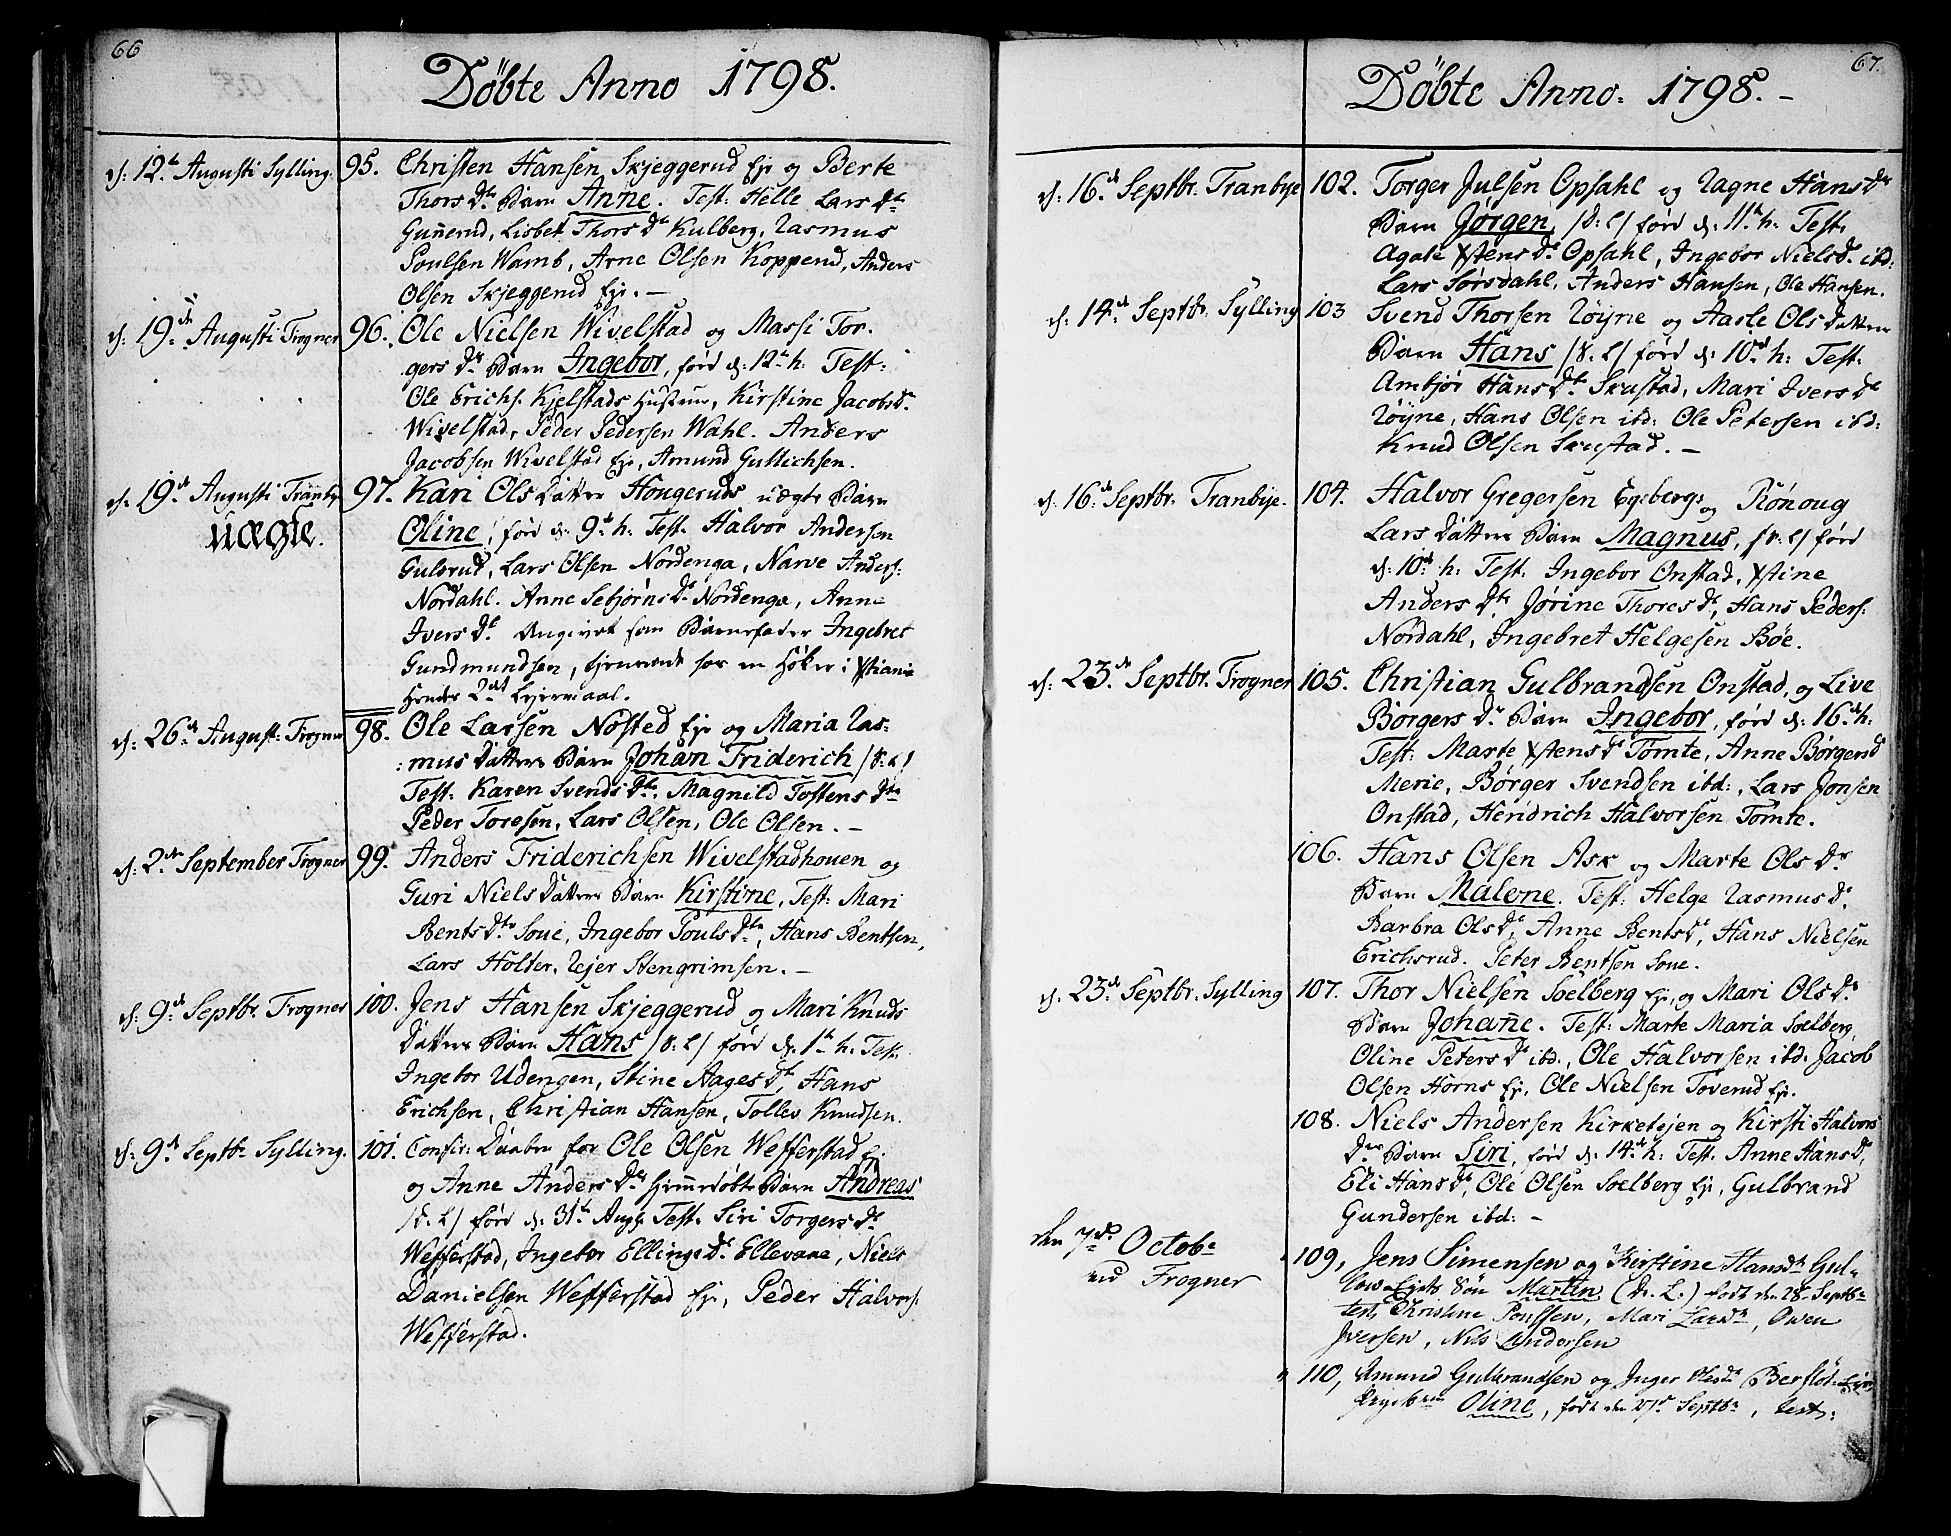 66
Döbte Anno 1798.
d: 12te Augusti Sylling. 95. Christen Hansen Skjeggerud Eje og Berte
Thors Dtr Barn Anne. Test: Helle Lars Dtr
Gunerud, Lisbet Thors Dtr Kulberg, Rasmus
Poulsen Wamb, Arne Olsen Koppend, Anders
Olsen Skjeggerud Eje. –
d: 19de Augusti Frogner 96. Ole Nielsen Wivelstad og Massi Tor-
gers Dr Barn Ingebor, förd d: 12te h: Test:
Ole Erichs. Kjelstads Hustrue, Kirstine Jacobs D.
Wivelstad, Peder Pedersen Wahl. Anders
Jacobsen Wivelstad Eje, Amund Gullichsen.
d: 19de Augusti Tranby 97. Kari Ols Datter Hougeruds uægte Barn
uægte.
Oline, förd d: 9de h: Test. Halvor Andersen
Gulsrud, Lars Olsen Nordenga, Narve Anders:
Nordahl. Anne Sebjörns Dr Nordenga, Anne
Ivers Dr. Angivet som Barnefader Ingebret
Gundmundsen, tjenende for en Höker i Xstiania
Hendes 2det Lejermaal.
d: 26de August: Frogner 98. Ole Larsen Nösted Eje og Maria Ras-
:mus Datters Barn Johan Friderich /V: L/
Test: Karen Svends Dtr, Magnild Tostens Dtr
Peder Toresen, Lars Olsen, Ole Olsen. –
d: 2den September Frogner 99. Anders Friderichsen Wivelstadhouen og
Guri Niels Datters Barn Kirstine, Test: Mari
Bents Dtr Soue, Ingebor Pouls Dtr, Hans Bentsen,
Lars Holter, Rejer Stengrimsen. –
d: 9de Septbr. Frogner 100. Jens Hansen Skjeggerud og Mari Knuds
Datters Barn Hans /V: L/ förd d: 1te h: Test.
Ingebor Udengen, Stine Aages Dtr, Hans
Erichsen, Christian Hansen, Tollev Knudsen.
d: 9de Septbr Sylling. 101. Confir: Daaben for Ole Olsen Wefferstad Ej
og Anne Anders Dtr Hjemedöbte Barn Andreas
/V: L/ förd d: 31te Aug: Test. Siri Torgers Dr
Wefferstad, Ingebor Ellings Dr Ellevane, Niels
Danielsen Wefferstad Eje, Peder Halvors:
Wefferstad.
67.
Döbte Anno. 1798. –
d: 16de Septbr. Tranbye 102. Torger Julsen Opsahl og Ragne Hans Dr
Barn Jörgen /V: L/ förd d: 11te h: Test.
Agate Xstens Dr Opsahl, Ingebor Niels D. ibd:
Lars Sörsdahl, Anders Hansen, Ole Hansen.
d: 14de Septbr. Sylling 103 Svend Thorsen Röyne og Aasle Ols Datters
Barn Hans /V: L/ förd d: 10de h: Test.
Ambjör Hans Dtr Skustad, Mari Ivers Dr
Röyne, Hans Olsen ibd: Ole Petersen ibd:
Knud Olsen Skustad. –
d: 16de Septbr. Tranbye. 104. Halvor Gregersen Egebergs og Rönoug
Lars Datters Barn Magnus, /V: L/ förd
d: 10de h: Test. Ingebor Onstad, Xstine
Anders Dtr, Jörine Thores Dr, Hans Peders:
Nordahl, Ingebret Helgesen Böe.
d: 23de Septbr. Frogner 105. Christian Gulbrandsen Onstad, og Live
Börgers Dr Barn Ingebor, förd d: 16de h:
Test: Marte Xstens Dr Tomte, Anne Börgers D
Merie, Börger Svendsen ibd:, Lars Jonsen
Onstad, Hendrich Halvorsen Tomte.
106. Hans Olsen Ask og Marte Ols Dr
Barn Malene. Test: Helge Rasmus D.
Barbra Ols Dr, Anne Bents Dr, Hans Nielsen
Erichsrud. Peter Bentsen Soue.
d: 23de Septbr. Sylling 107. Thor Nielsen Soelberg Eje, og Mari Ols Dr
Barn Johane. Test: Marte Maria Soelberg,
Oline Peters Dr ibd:, Ole Halvorsen ibd: Jacob
Olsen Horns Eje, Ole Nielsen Toverud Eje.
108. Niels Andersen Kirketejen og Kirsti Halvors
Dtr Barn Siri, förd d: 14de h: Test: Anne Hans D,
Eli Hans Dr, Ole Olsen Soelberg Eje, Gulbrand
Gundersen ibd: –
den 7de Octobr
ved Frogner
109, Jens Simensen og Kirstine Hansdr Gul-
Sön Martin (V. L.) födt den 28 Septbr
test: Christine Poulsen, Mari Larsdr, Owen
Iversen, Nils Andersen
110, Amund Gulbrandsen og Inger Olesdr
Oline, födt den 21de Septbr, test: